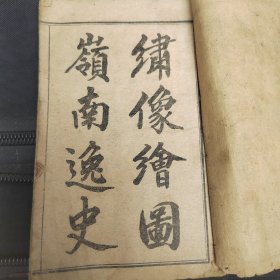 繡像繪圖
嶺南逸史